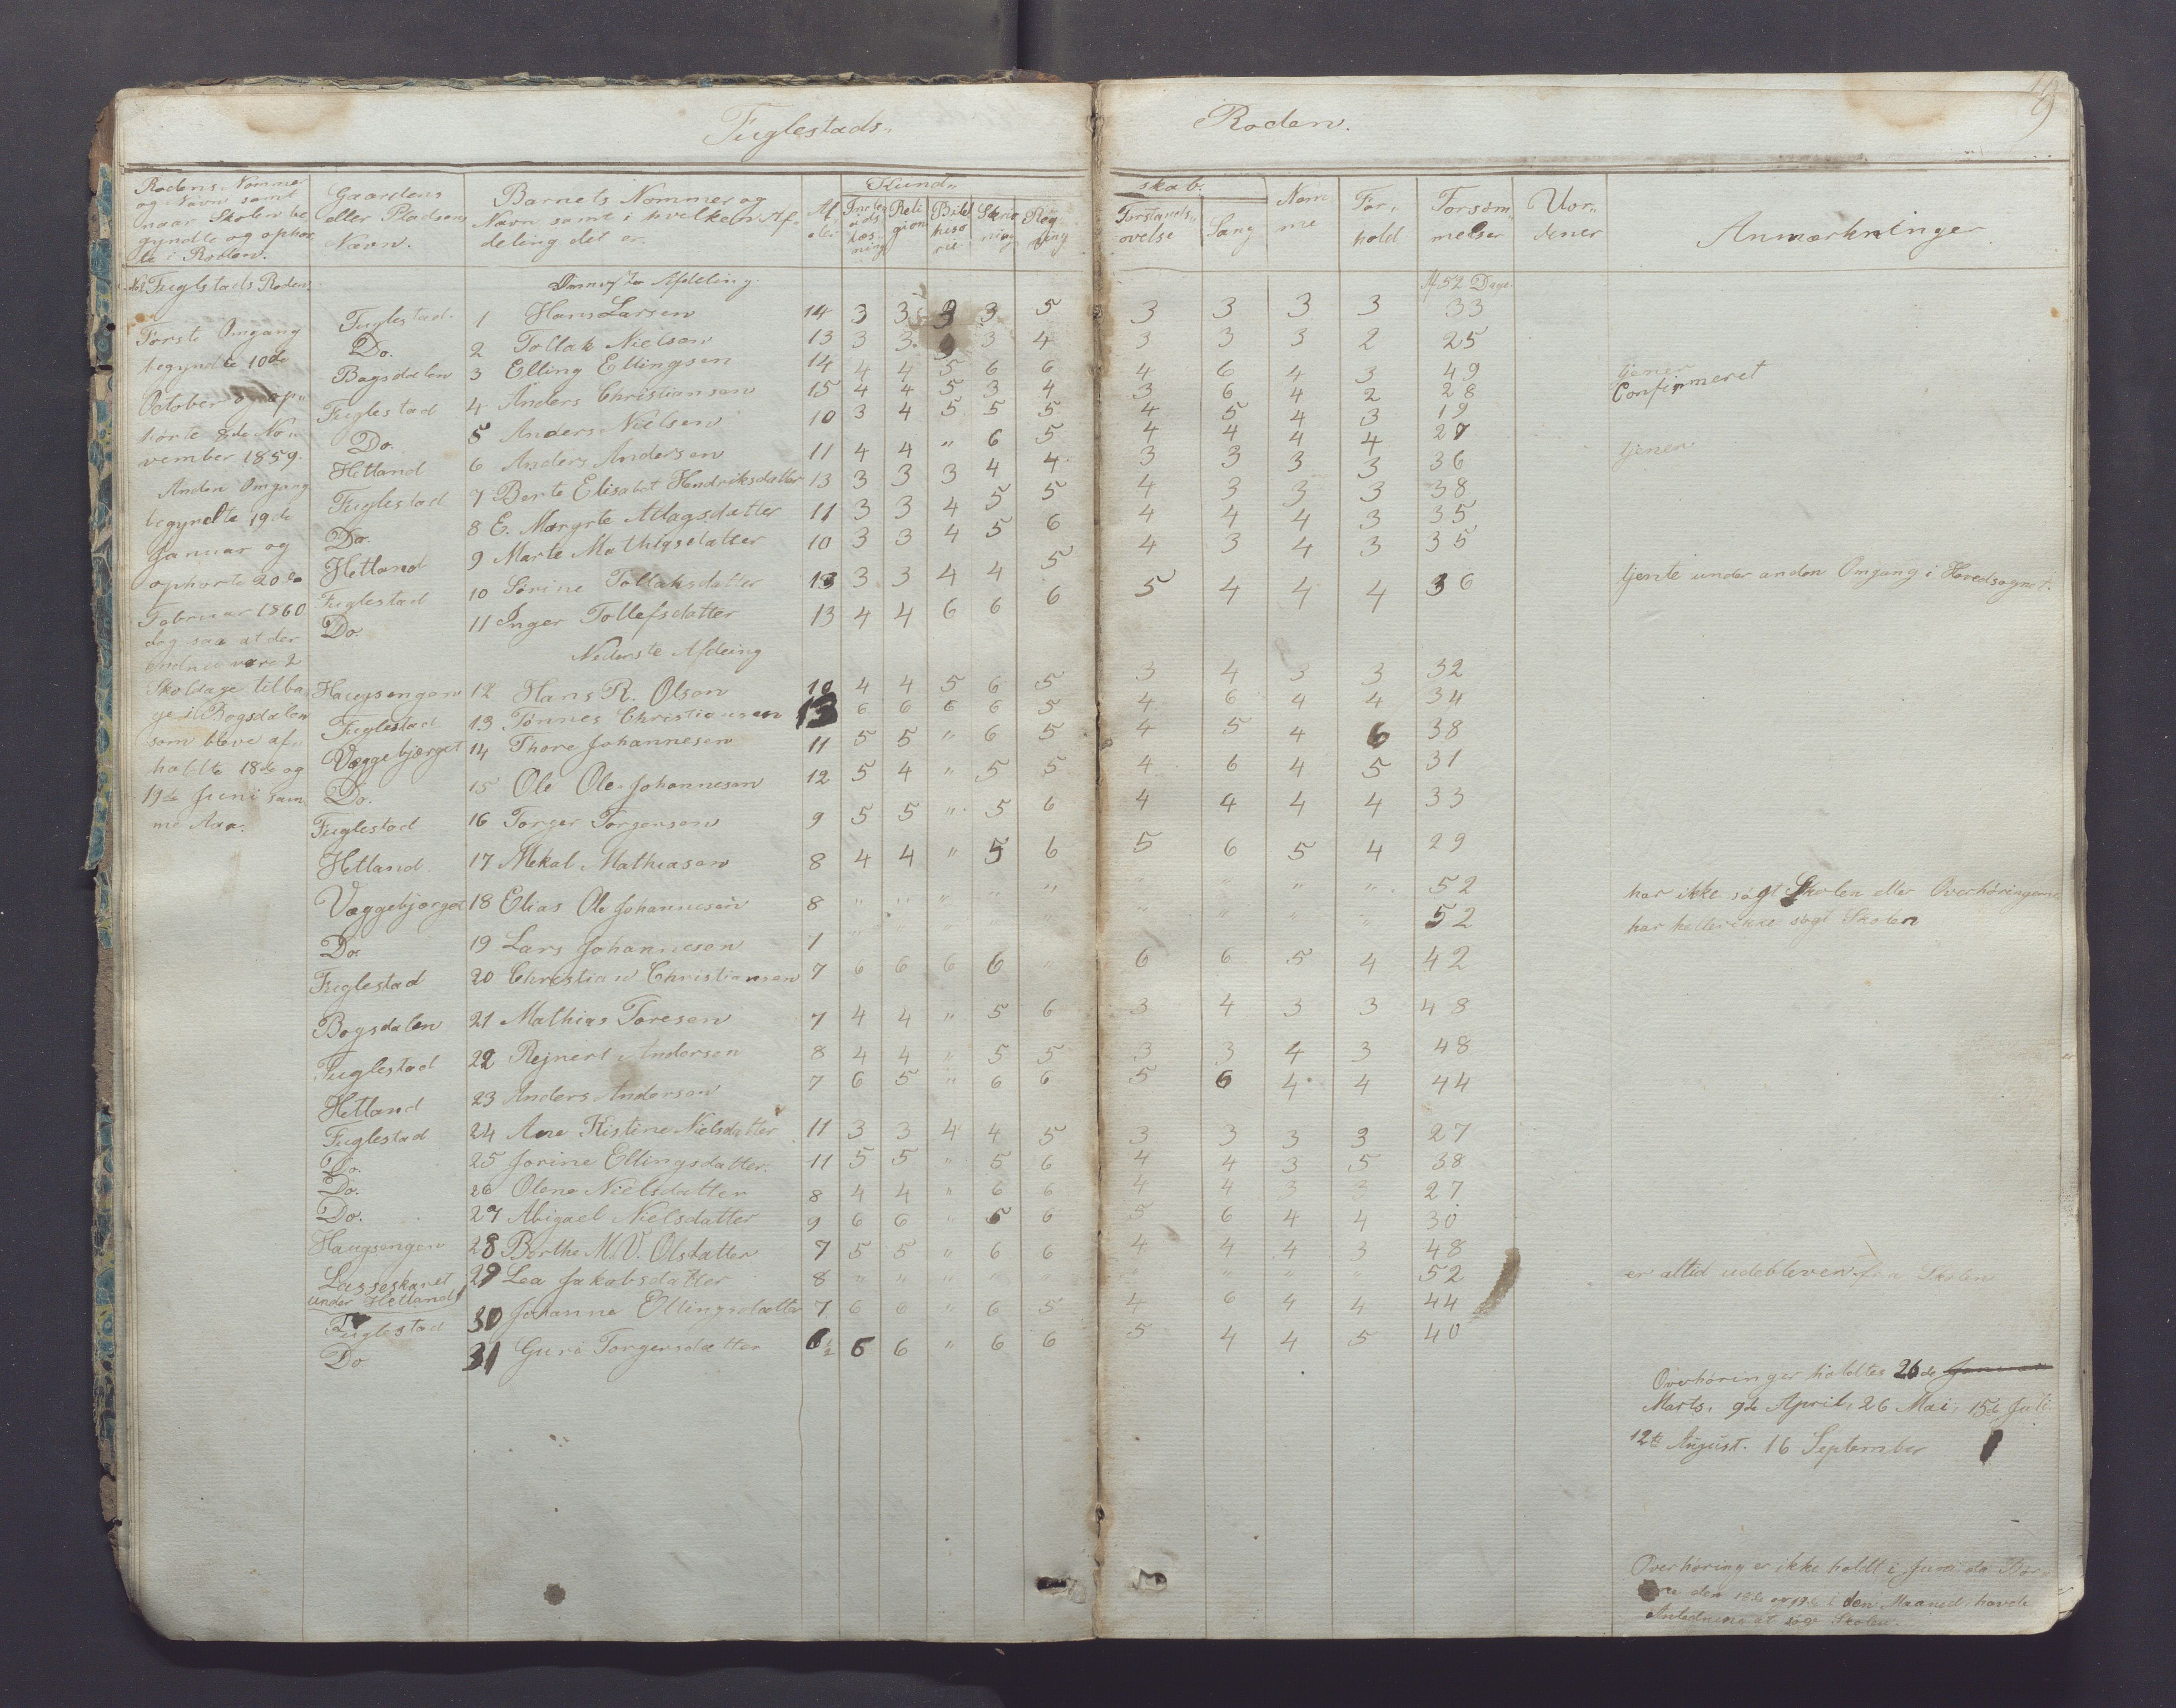 Fuglestads„ Roden.
19
Rodens Nommer og Navn samt naar Skolen be gyndte og ophør te i Roden.
Gaardens eller Pladsens Navn.
Barnets Nommer og Navn samt i hvilken Af„ deling det er.
Al„ der
Kund„ skab.
Religion
Bibelhisorie
Skrivning
Regning
Forstands„ øvelse
Sang
Nem me
For„ hold
Forsøm„ melser
Vor„ dener
Anmærkninger
No 2 Fuglstads Roden.
Første Omgang
begyndte 10de
October og op„
hørte 8de No„
vember 1859.
Anden Omgang
begyndte 19de
Januar og
ophørte 20de
Februar 1860
dog saa at der
endnu vare 2
Skoldage tilba
ge i Bogsdalen
som bleve af„
holdte 18de og
19de Juni sam
me Aar.
Øverste Afdeling.
Af 52 Dage.
Fuglestad. 1 Hans Larsen 14 3 3 3 3 5 3 3 3 3 33
Do. 2 Tollak Nielsen 13 3 3 3 3 4 3 3 3 2 25
Bogsdalen 3 Elling Ellingsen 14 4 4 5 6 6 4 6 4 3 49 tjener
Fuglestad 4 Anders Christiansen 15 4 4 5 3 4 3 6 4 2 28 Confirmeret
Do. 5 Anders Nielsen 10 3 4 5 5 5 4 5 4 3 19
Hetland 6 Anders Andersen 11 4 4 „ 6 5 4 4 4 4 27 tjener
Fuglestad 7 Berte Elisabet Hendriksdatter 13 3 3 3 4 4 3 3 3 3 36
Do. 8 E. Margrte Atlagsdatter 11 3 3 4 5 5 4 3 3 3 38
Hetland 9 Marte Mathiasdatter 10 3 3 4 5 6 4 4 4 3 35
Fuglestad 10 Sørine Tollaksdatter 13 3 3 4 4 5 4 3 4 3 35
Do. 11 Inger Tollefsdatter 13 4 4 6 6 6 5 4 4 4 36 tjente under anden Omgang i Hovedsognet.
Nederste Afdeing
Haugsengen 12 Hans R. Olsen 10 4 4 5 6 5 3 4 3 3 32
Fuglestad 13 Tønnes Christiansen 13 6 6 6 6 5 4 6 4 4 34
Væggebjerget 14 Thore Johannesen 11 5 5 „ 6 5 4 5 4 6 38
Do. 15 Ole Ole Johannesen 12 5 4 „ 5 5 4 6 4 5 31
Fuglestad 16 Torger Torgersen 9 5 5 „ 5 6 4 4 4 4 33
Hetland. 17 Mekal Mathiasen 8 4 4 „ 5 6 5 6 5 4 29
Væggebjerget 18 Elias Ole Johannesen 8 „ „ „ „ „ „ „ „ „ 52 har ikke søgt Skolen eller Overhøringerne
Do 19 Lars Johannesen 7 „ „ „ „ „ „ „ „ „ 52 har heller ikke søgt Skolen
Fuglestad 20 Christian Christiansen 7 6 6 6 6 „ 6 6 5 4 42
Bogsdalen 21 Mathias Toresen 7 4 4 „ 5 6 3 4 3 3 48
Fuglestad 22 Rejnert Andersen 8 4 4 „ 5 5 3 3 4 3 48
Hetland 23 Anders Andersen 7 6 5 „ 6 6 5 6 4 4 44
Fuglestad 24 Ane Kistine Nielsdatter 11 3 3 4 4 5 3 3 3 3 27
Do. 25 Jorine Ellingsdatter. 11 5 5 „ 5 6 4 4 3 5 38
Do. 26 Olene Nielsdatter 8 4 4 „ 6 6 4 4 3 3 27
Do. 27 Abigael Nielsdatter 9 6 6 „ 6 6 5 6 4 4 30
Haugsengen 28 Berthe M. V. Olsdatter 7 5 5 „ 6 6 4 4 4 3 48
Lasseskaret under Hetland 29 Lea Jakobsdatter 8 „ „ „ „ „ „ „ „ 52 er altid udebleven fra Skolen
Fuglestad 30 Johanne Ellingsdatter 7 6 6 „ 6 5 4 6 4 4 44
Do 31 Guro Torgersdatter 6½ 6 6 „ 6 6 5 4 4 5 40
Overhøringer holdtes 26de Januar
Marts, 9de April, 26 Mai, 15de Juli
12te August. 16 September
Overhøring er ikke holdt i Juni da Bør„
ne den 18de og 19de i den Maaned havde
Anledning at søge Skolen.